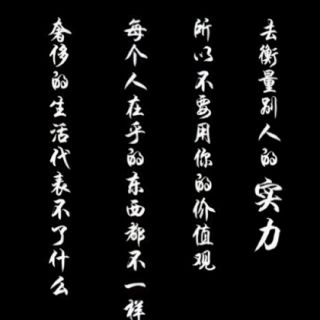 奢侈的生活代表不了什么
每个人在乎的东西都不一样
所以不要用你的价值观
去衡量别人的实力